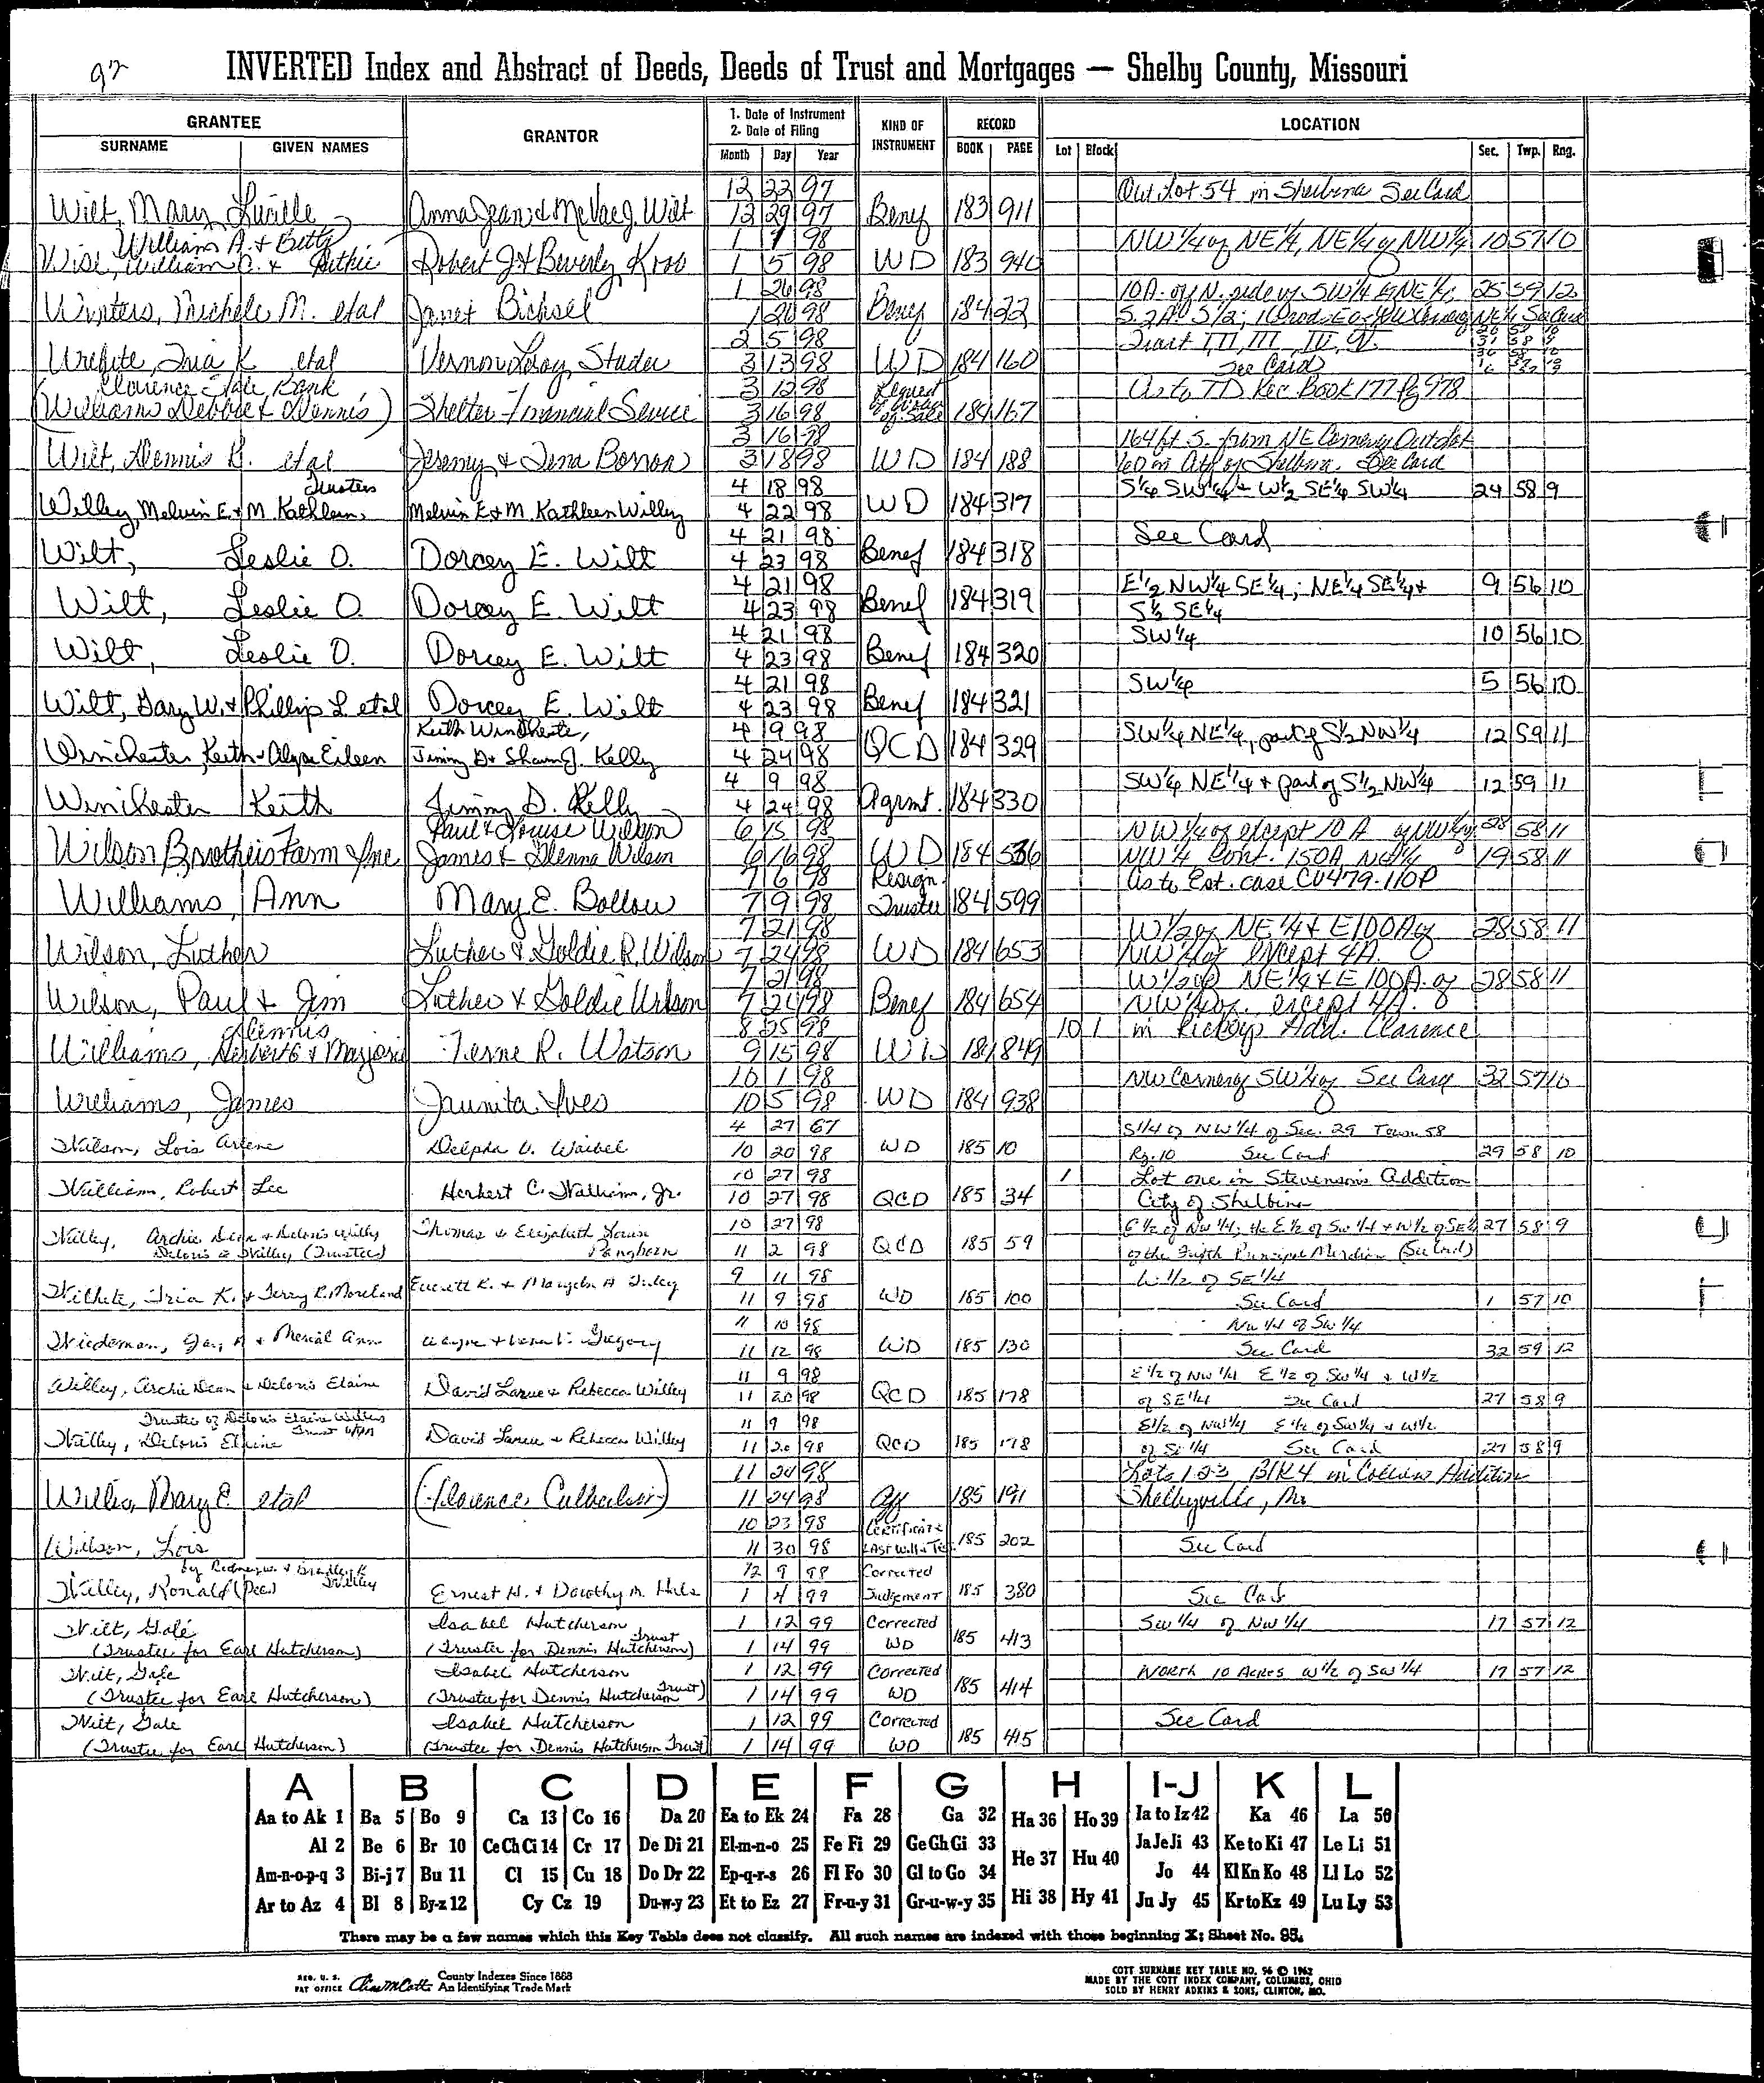 92
INVERTED Index and Abstract of Deeds, Deeds of Trust and Mortgages — Shelby County, Missouri
GRANTEE GRANTOR 1. Date of Instrument 2. Date of Filing KIND OF INSTRUMENT RECORD LOCATION
SURNAME GIVEN NAMES Month Day Year BOOK PAGE Lot Block Sec. Twp. Rng.
12 22 97 Out Lot 54 in Shelbina See Card
Wilt, Mary Lucille Anna Jean & McVae J. Wilt 12 29 97 Benef 183 911
William A. & Betty 1 1 98 NW 1/4 of NE 1/4, NE 1/4 of NW 1/4 10 57 10
Robert J & Beverly 1 5 98 WD 183 940
1 20 98 10 A. of N. side of SW 1/4 NE 1/4; 25 59 12
Winters, Michele M. etal Janet Bichsel 1 20 98 Benef 184 22
2 5 98 Tract I, II, III
Tria K etal Vernon Leroy Studer 3 13 98 WD 184 160 See Card
Clarence State Bank 3 12 98 Request As to TD Rec Book 177 Pg 978
(Williams Debbie & Dennis) Shelter Financial Service 3 16 98 of Sale 184 167
3 16 98 164 ft S. from NE Corner of Out Lot
Wilt, Dennis etal Jeremy & Tena 3 18 98 WD 184 188 60 in City of Shelbina. See Card
Trustees 4 18 98 S 1/2 SW 1/4 & W 1/2 SE 1/4 SW 1/4 24 58 9
Willey, Melvin E. & M. Kathleen, Melvin E & M. Kathleen Willey 4 22 98 WD 184 317
4 21 98 See Card
Wilt, Leslie O. Dorcey E. Wilt 4 23 98 Benef 184 318
4 21 98 E 1/2 NW 1/4 SE 1/4; NE 1/4 SE 1/4 & 9 56 10
Wilt, Leslie O. Dorcey E. Wilt 4 23 98 Benef 184 319 S 1/2 SE 1/4
4 21 98 SW 1/4 10 56 10
Wilt, Leslie O. Dorcey E. Wilt 4 23 98 Benef 184 320
4 21 98 SW 1/4 5 56 10
Wilt, Gary W. & Phillip L etal Dorcey E. Wilt 4 23 98 Benef 184 321
Keith Winchester, 4 9 98 SW 1/4 NE 1/4, part of S 1/2 NW 1/4 12 59 11
Winchester, Keith & Alyse Eileen Jimmy D & Shawn J. Kelly 4 24 98 QCD 184 329
4 9 98 SW 1/4 NE 1/4 & part of S 1/2 NW 1/4 12 59 11
Winchester Keith Jimmy D. Kelly 4 24 98 Agrmt. 184 330
Paul & Louise Wilson 6 15 98 NW 1/4 of except 10 A of NW 1/4 28 58 11
Wilson Brothers Farm Inc James & Glenna Wilson 6 16 98 WD 184 536 NW 1/4 Cont. 150A 19 58 11
7 6 98 Resign As to Est. case CV479-110P
Williams, Ann Mary E. Bollow 7 9 98 Trustee 184 599
7 21 98 W 1/2 of NE 1/4 & E 100 A of 28 58 11
Wilson, Luther Luther & Goldie R. Wilson 7 24 98 WD 184 653 NW 1/4 of except 4A.
7 21 98 W 1/2 of NE 1/4 & E 100A. of 28 58 11
Wilson, Paul & Jim Luther & Goldie Wilson 7 24 98 Benef 184 654 NW 1/4 of except 4A.
Dennis 8 25 98 10 1 in Add. Clarence
Williams, Herbert & Marjorie Ferne R. Watson 9 15 98 WD 184 849
10 1 98 NW Corner of SW 1/4 of See Card 32 57 10
Williams, James Jaunita Ives 10 5 98 WD 184 938
4 27 67 S 1/4 of NW 1/4 of Sec. 29 Town 58
Wilson, Lois Arlene Delpha V. Waibel 10 20 98 WD 185 10 Rg. 10 See Card 29 58 10
10 27 98 1 Lot one in Stevenson's Addition
William, Robert Lee Herbert C. William, Jr. 10 27 98 QCD 185 34 City of Shelbina
Willey, Archie Dean & Deloris Willey Thomas & Elizabeth 10 27 98 E 1/2 of NW 1/4; the E 1/2 of SW 1/4 & W 1/2 of SE 1/4 27 58 9
Deloris E Willey (Trustees) Langhorn 11 2 98 QCD 185 59 of the Fifth Principal Meridian (See Card)
9 11 98 W 1/2 of SE 1/4
Wilhite, Tria K. & Terry R. Moreland Everett K. & 11 9 98 WD 185 100 See Card 1 57 10
11 10 98 NW 1/4 of SW 1/4
Wiedeman, Gary & Marcial Ann Wayne & Gregory 11 12 98 WD 185 130 See Card 32 59 12
11 9 98 E 1/2 of NW 1/4 E 1/2 of SW 1/4 & W 1/2
Willey, Archie Dean & Deloris Elaine David Larue & Rebecca Willey 11 20 98 QCD 185 178 of SE 1/4 See Card 27 58 9
Trustee of Deloris Elaine Willey Trust 11 9 98 E 1/2 of NW 1/4 E 1/2 of SW 1/4 & W 1/2
Willey, Deloris Elaine David Larue & Rebecca Willey 11 20 98 QCD 185 178 of SE 1/4 See Card 27 58 9
11 24 98 Lots 1-2-3 Blk 4 in Collins Addition
Mary E. etal (Florence Culbertson) 11 24 98 Aff 185 191 Shelbyville, Mo
10 23 98 Certificate
Wilson, Lois 11 30 98 Last Will & Tes. 185 202 See Card
by Rodney W. & Bradley K Willey 12 9 98 Corrected
Willey, Ronald (Dec) Ernest H. & Dorothy M. 1 4 99 Judgement 185 380 See Card
Wilt, Gale Isabel Hutcherson 1 12 99 Corrected SW 1/4 of NW 1/4 17 57 12
(Trustee for Earl Hutcherson) (Trustee for Dennis Hutcherson Trust) 1 14 99 WD 185 413
Wilt, Gale Isabel Hutcherson 1 12 99 Corrected North 10 Acres W 1/2 of SW 1/4 17 57 12
(Trustee for Earl Hutcherson) (Trustee for Dennis Hutcherson Trust) 1 14 99 WD 185 414
Wilt, Gale Isabel Hutcherson 1 12 99 Corrected See Card
(Trustee for Earl Hutcherson) (Trustee for Dennis Hutcherson Trust) 1 14 99 WD 185 415
A B C D E F G H I-J K L
Aa to Ak 1 Ba 5 Bo 9 Ca 13 Co 16 Da 20 Ea to Ek 24 Fa 28 Ga 32 Ha 36 Ho 39 Ia to Iz 42 Ka 46 La 50
Al 2 Be 6 Br 10 Ce Ch Ci 14 Cr 17 De Di 21 El-m-n-o 25 Fe Fi 29 Ge Gh Gi 33 He 37 Hu 40 Ja Je Ji 43 Ke to Ki 47 Le Li 51
Am-n-o-p-q 3 Bi-j 7 Bu 11 Cl 15 Cu 18 Do Dr 22 Ep-q-r-s 26 Fl Fo 30 Gl to Go 34 Hi 38 Hy 41 Jo 44 Kl Kn Ko 48 Ll Lo 52
Ar to Az 4 Bl 8 By-z 12 Cy Cz 19 Du-w-y 23 Et to Ez 27 Fr-u-y 31 Gr-u-w-y 35 Ju Jy 45 Kr to Kz 49 Lu Ly 53
There may be a few names which this Key Table does not classify. All such names are indexed with those beginning X; Sheet No. 95.
REG. U. S. PAT OFFICE County Indexes Since 1888 An Identifying Trade Mark
COTT SURNAME KEY TABLE NO. 96 © 1962
MADE BY THE COTT INDEX COMPANY, COLUMBUS, OHIO
SOLD BY HENRY ADKINS & SONS, CLINTON, MO.